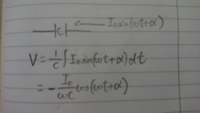 I₀ sin(ωt+α)
C
V = 1/C ∫ I₀ sin(ωt+α) dt
= - I₀/ωC cos(ωt+α)